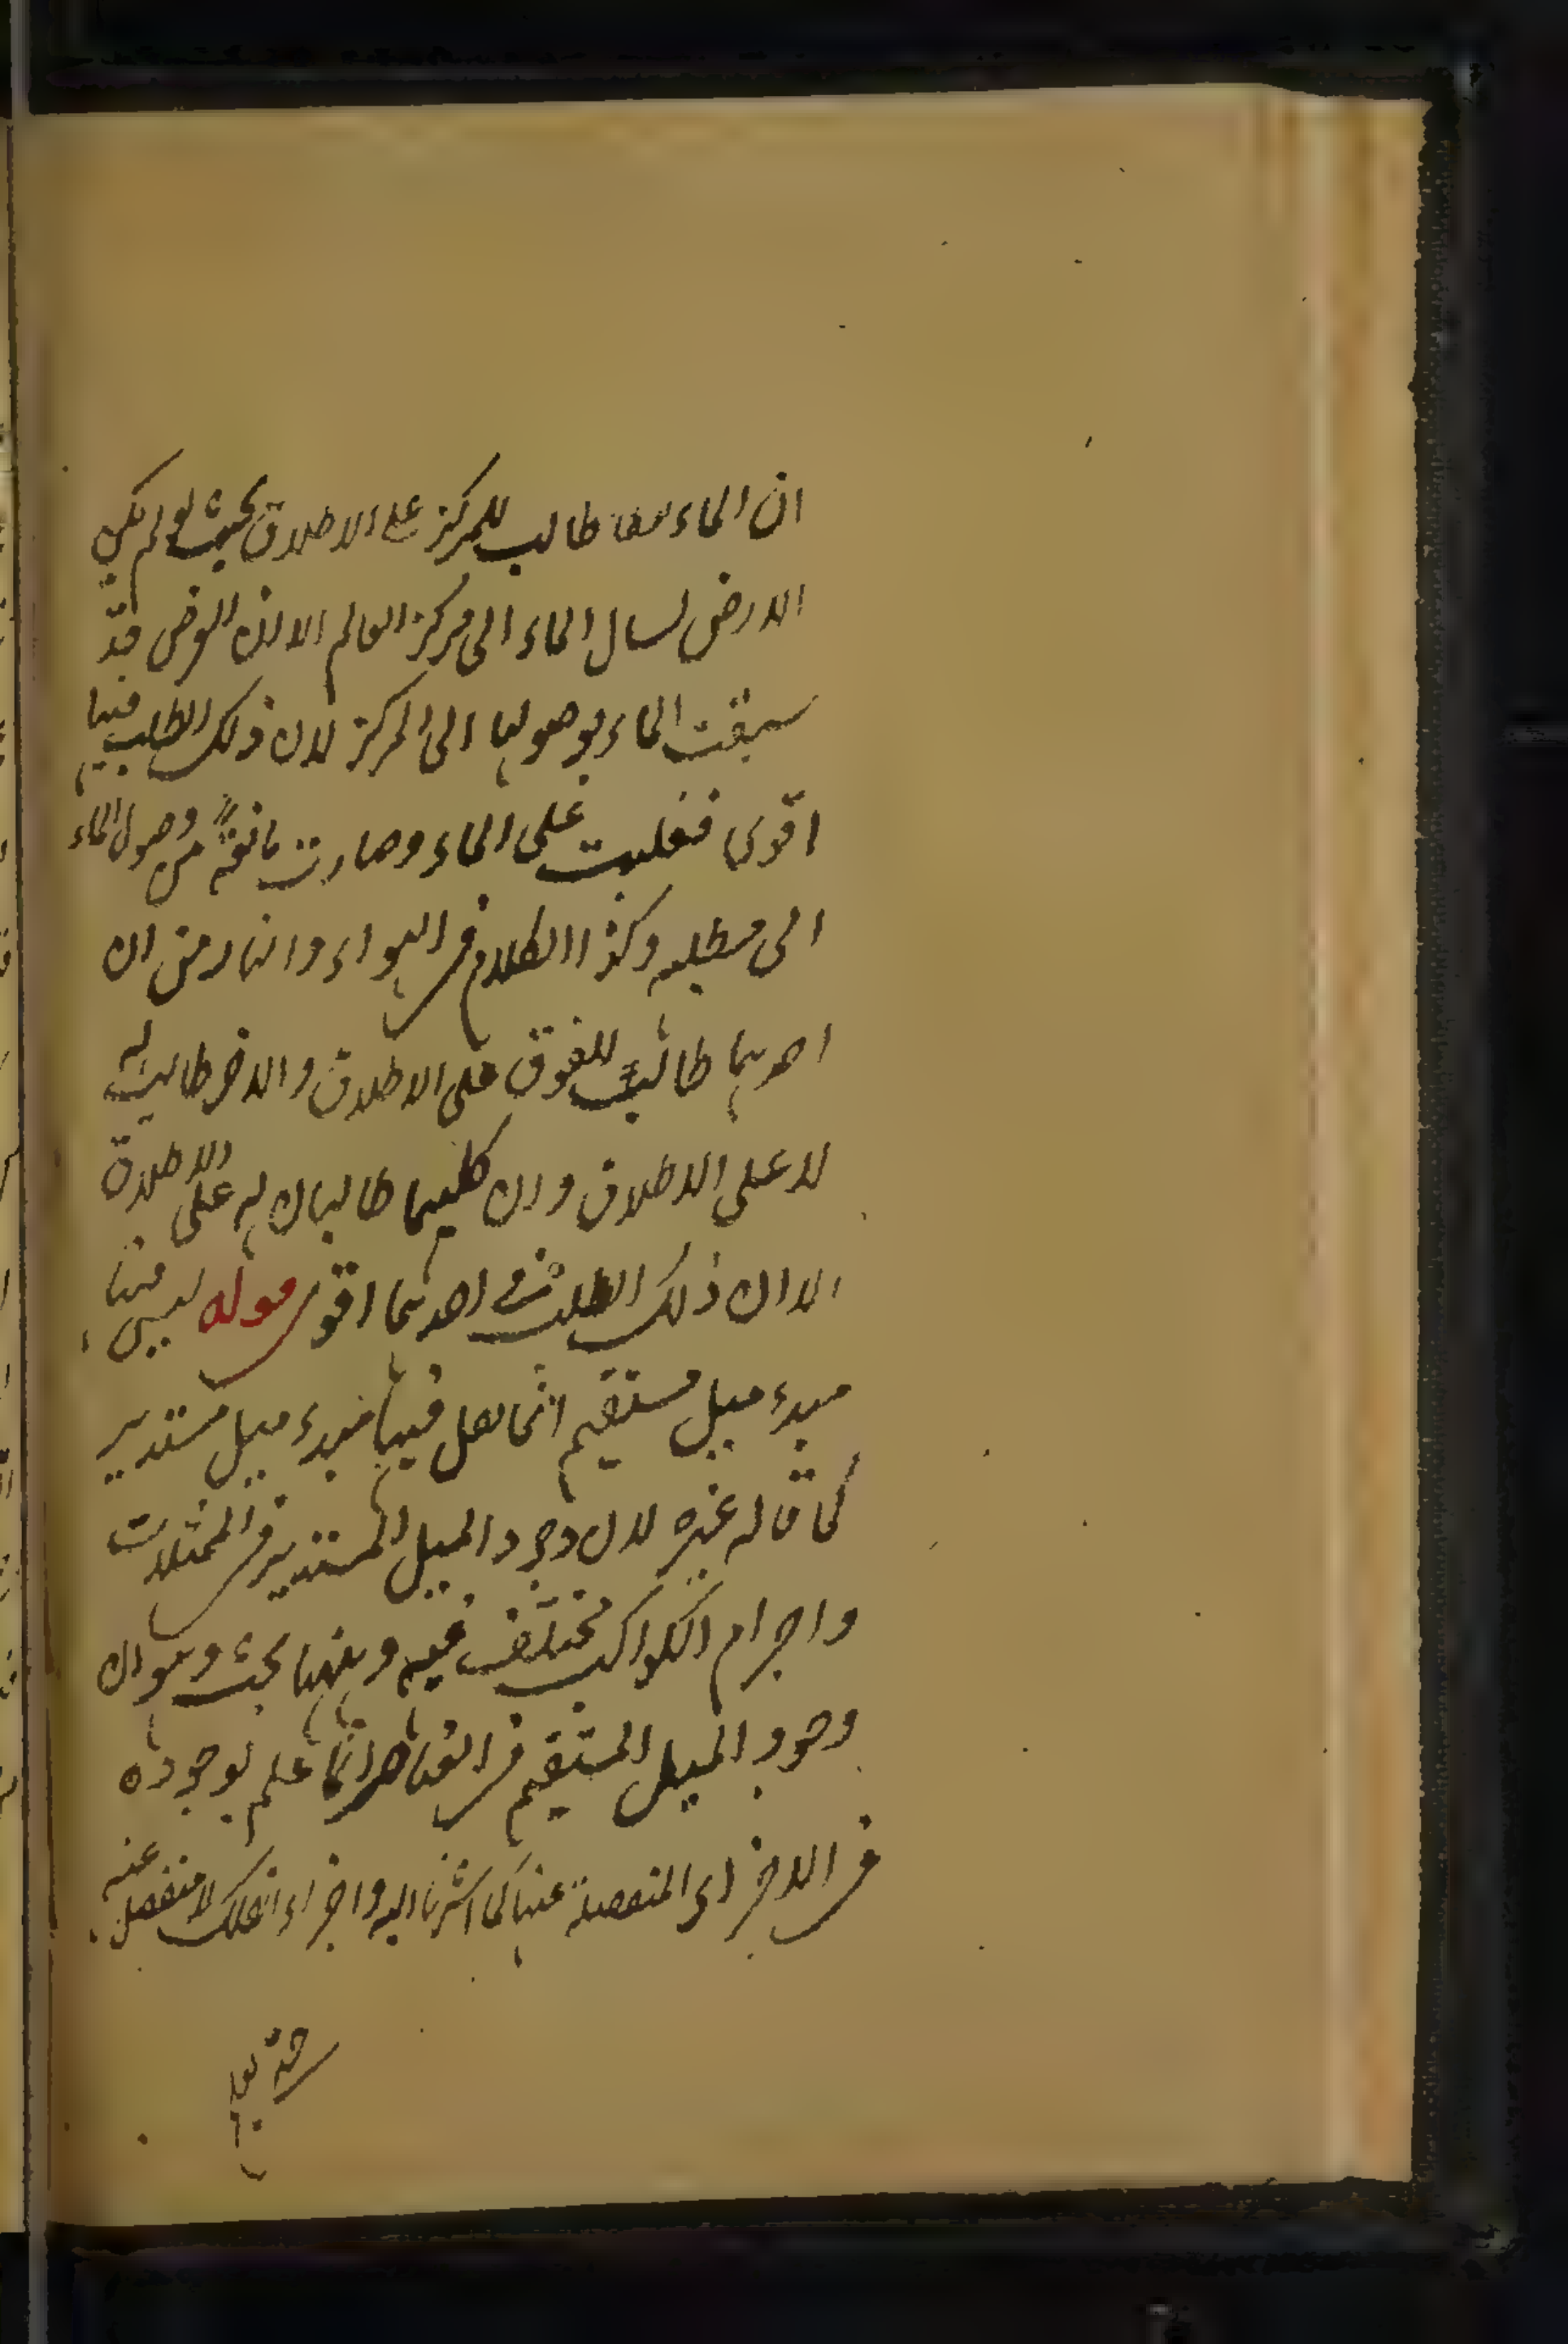 ان الماء ايضا طالب للمركز على الاطلاق بحيث لو لم يكن
الارض لسال الماء الى مركز العالم الا ان الارض قد
سبقت الماء بوصولها الى المركز لان ذلك الطلب فيها
اقوى فغلبت على الماء وصارت مانعة من وصول الماء
الى مطلبه وكذا الكلام فى الهواء والنار من ان
احدهما طالب للفوق على الاطلاق والاخر طالب له
لا على الاطلاق وان كليهما طالبان له على الاطلاق
الا ان ذلك الطلب فى احدهما اقوى قوله ليس فيها
مبدء ميل مستقيم انما فيها مبدء ميل مستدير
كما قاله غيره لان وجود الميل المستدير فى الممثلات
واجرام الكواكب مختلف فيه وههنا بحث وهو ان
وجود الميل المستقيم فى العناصر انما علم بوجوده
فى الاجزاء المنفصلة عنها كما اشرنا اليه واجزاء الفلك لا منفصل عنه